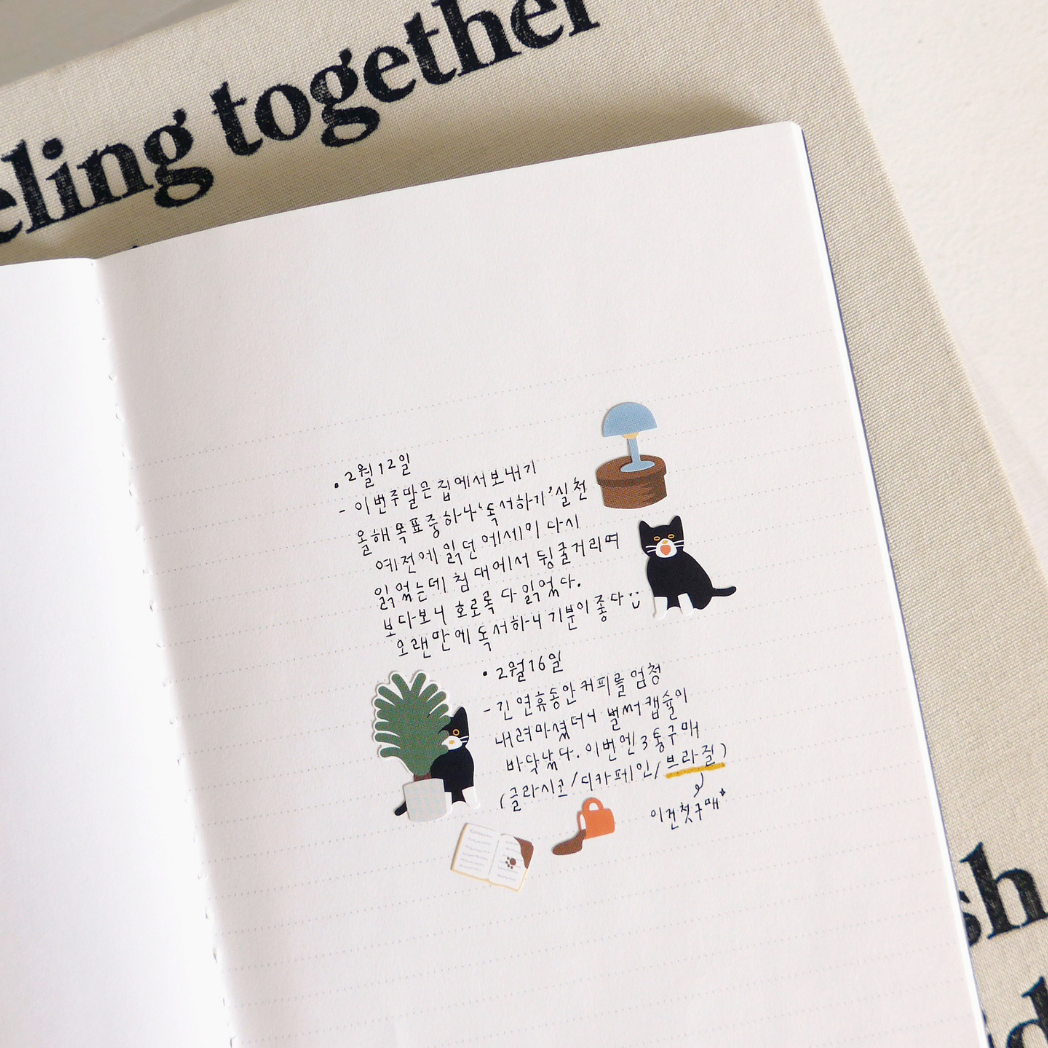 eling together
• 2월 12일
- 이번주말은 집에서 보내기
올해 목표중 하나 '독서하기' 실천
예전에 읽던 에세이 다시
읽었는데 침대에서 뒹굴거리며
보다보니 호로록 다 읽었다.
오랜만에 독서하니 기분이 좋다
• 2월 16일
- 긴 연휴동안 커피를 엄청
내려마셨더니 벌써 캡슐이
바닥났다. 이번엔 3통구매
(클라시코/디카페인/브라질)
이건첫구매*
sh
id